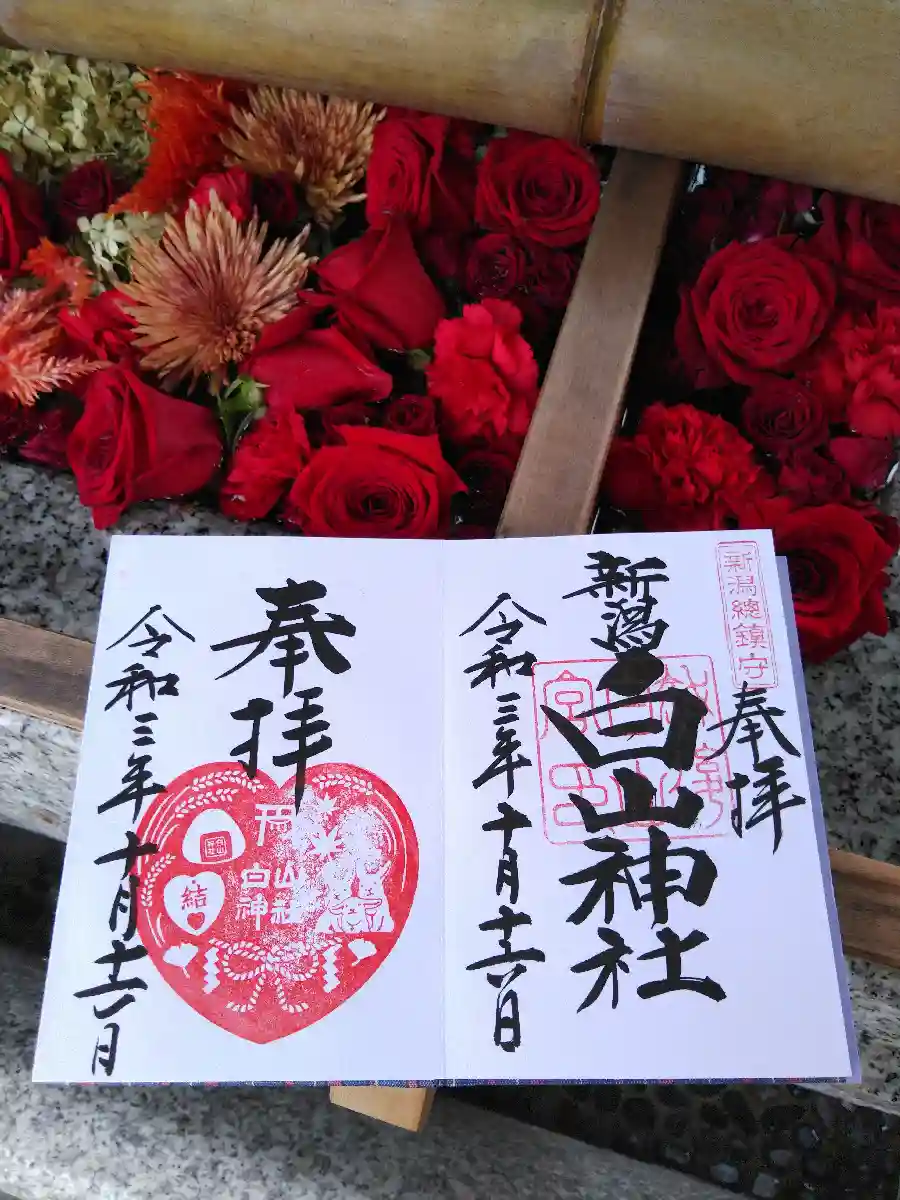 新潟總鎮守
奉拝
新潟白山神社
令和三年十月十六日
奉拝
白山神社
結
令和三年十月十六日